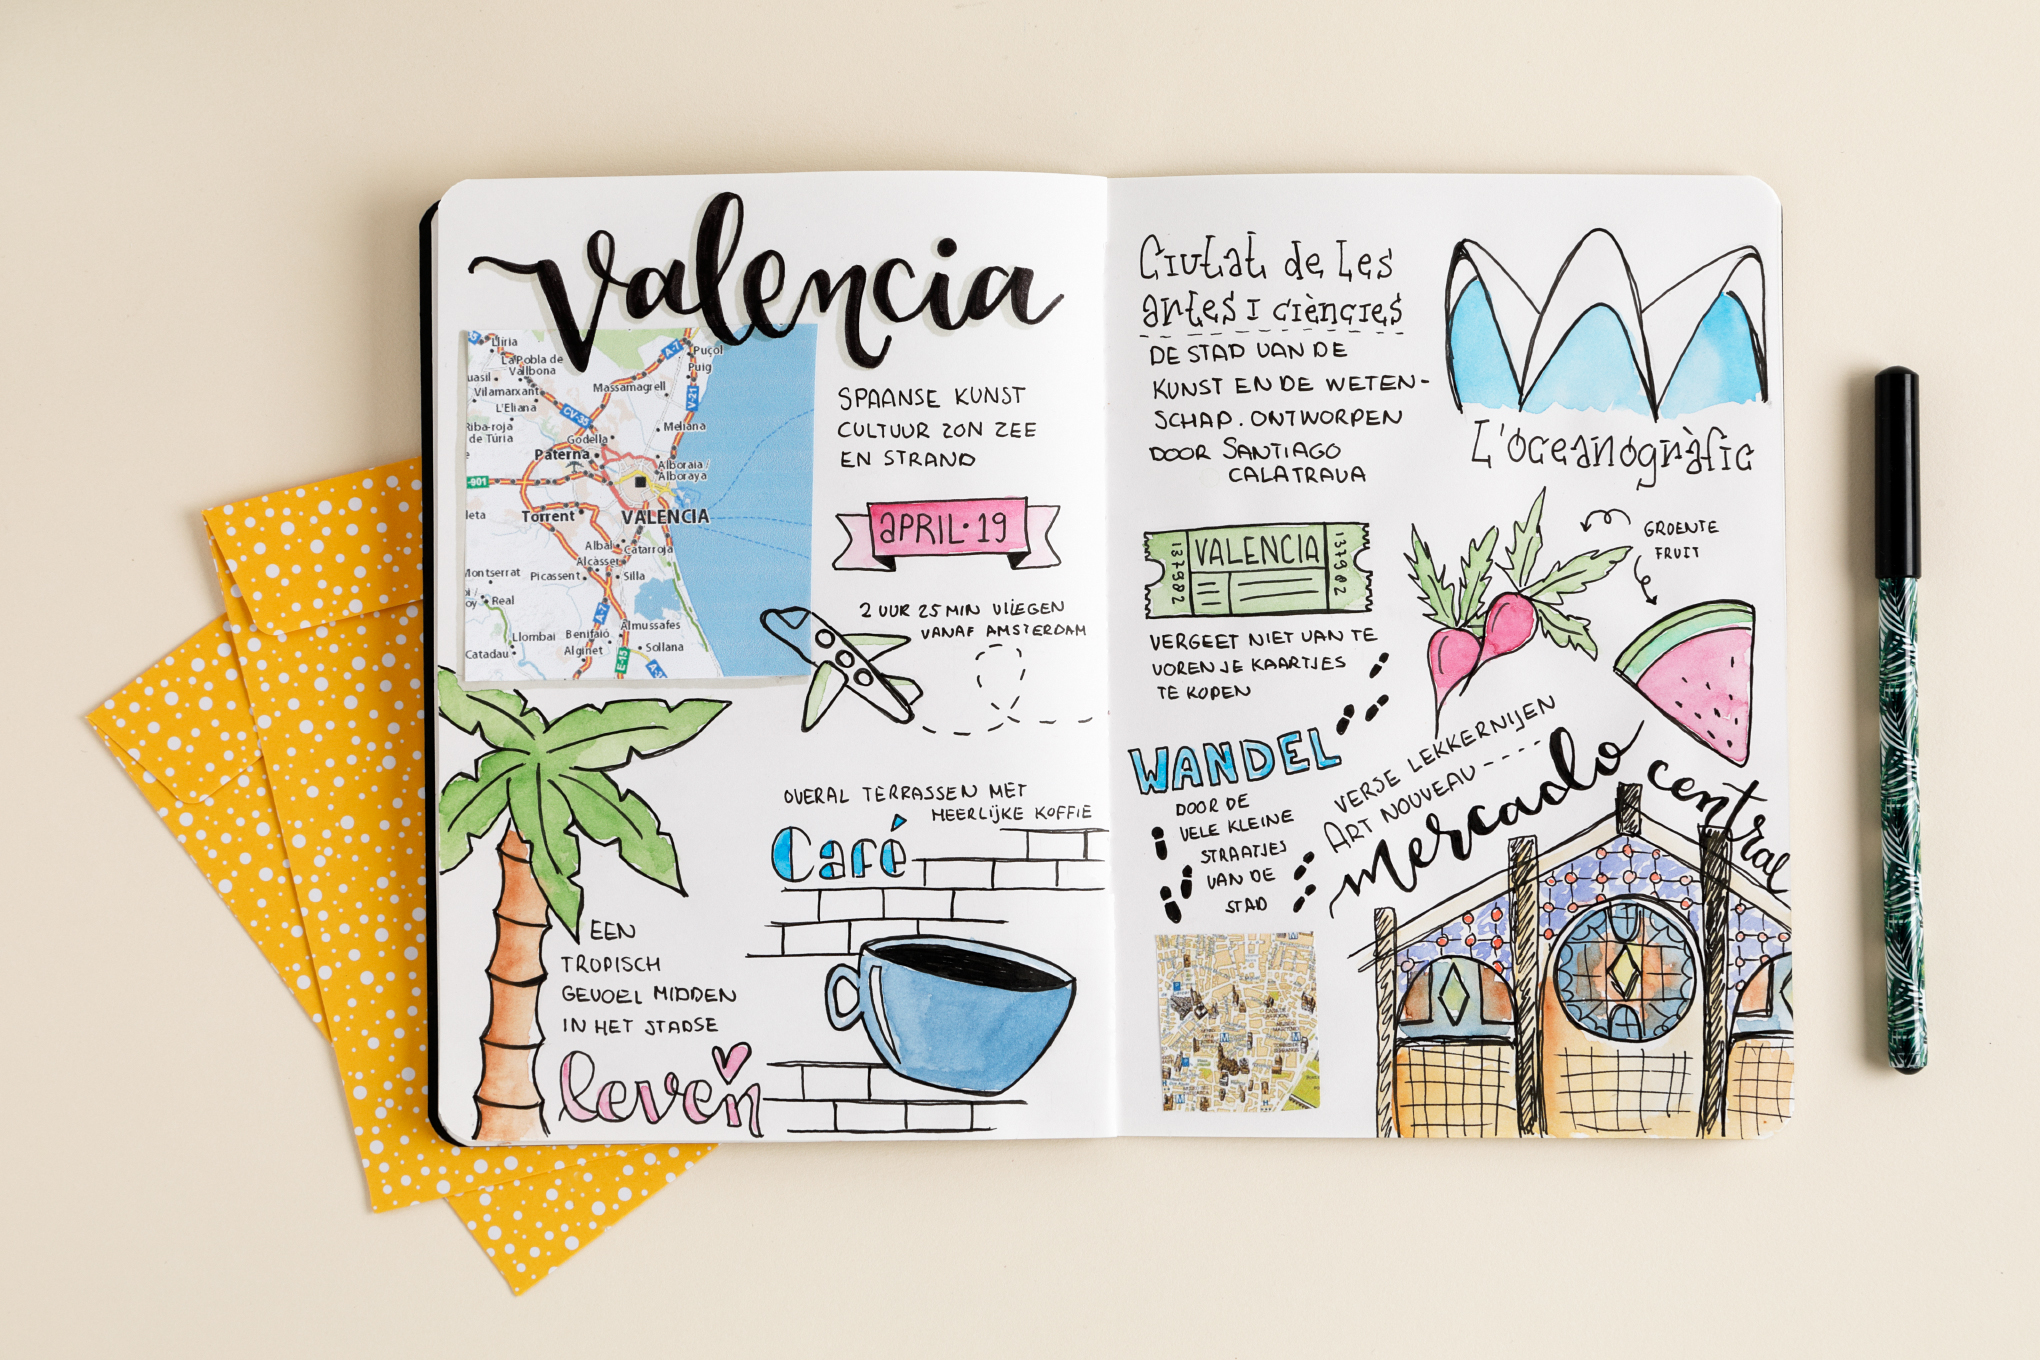 Valencia
Llíria
La Pobla de
Vallbona
uasil
Vilamarxant
L'Eliana
Riba-roja
de Túria
A-7
Puçol
Puig
Massamagrell
V-21
CV-35
Meliana
Godella
Paterna
Alboraia /
Alboraya
-901
leta
Torrent
VALENCIA
Albal
Catarroja
Alcàsser
Montserrat
Picassent
Silla
Real
A-7
Llombai
Benifaió
Almussafes
Catadau
Alginet
E-15
Sollana
SPAANSE KUNST
CULTUUR ZON ZEE
EN STRAND
APRIL·19
2 UUR 25 MIN VLIEGEN
VANAF AMSTERDAM
OVERAL TERRASSEN MET
HEERLIJKE KOFFIE
Café
EEN
TROPISCH
GEVOEL MIDDEN
IN HET STADSE
leven
Ciutat de Les
artes I ciències
DE STAD VAN DE
KUNST EN DE WETEN-
SCHAP. ONTWORPEN
DOOR SANTIAGO
CALATRAVA
L'Oceanogràfic
137982
VALENCIA
137982
GROENTE
FRUIT
VERGEET NIET VAN TE
VOREN JE KAARTJES
TE KOPEN
WANDEL
DOOR DE
VELE KLEINE
STRAATJES
VAN DE
STAD
VERSE LEKKERNIJEN
ART NOUVEAU ----
mercado central